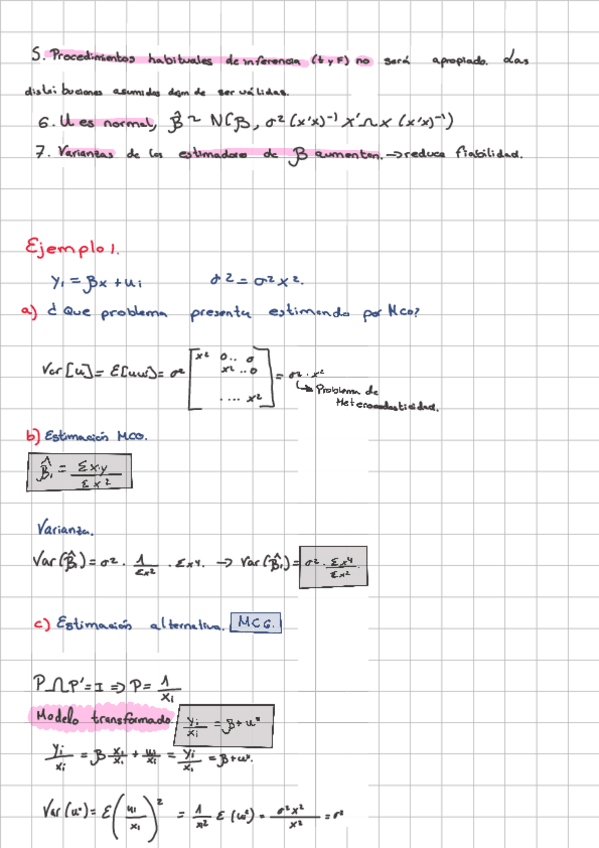 5. Procedimientos habituales de inferencia (t y F) no será apropiado. Las
distribuciones asumidas dejan de ser válidas.
6. U es normal, β̂ ~ N(β, σ²(x'x)⁻¹ x'Ωx (x'x)⁻¹)
7. Varianzas de los estimadores de β aumentan. → reduce fiabilidad.
Ejemplo 1.
yᵢ = βx + uᵢ σ² = σ²x².
a) ¿Que problema presenta estimando por MCO?
Var[u] = E[uu'] = σ² [x² 0 .. 0
x² .. 0
.... x²] = σ² · x²
↳ Problema de
Heterocedasticidad.
b) Estimación MCO.
β̂₁ = Σx·y / Σx²
Varianza.
Var(β̂₁) = σ² · 1/Σx² · Σx⁴. → Var(β̂₁) = σ² · Σx⁴/Σx²
c) Estimación alternativa. MCG.
PΩP' = I ⇒ P = 1/xᵢ
Modelo transformado yᵢ/xᵢ = β + u*
yᵢ/xᵢ = β xᵢ/xᵢ + uᵢ/xᵢ = yᵢ/xᵢ = β + u*.
Var(u*) = E(uᵢ/xᵢ)² = 1/x² E(u²) = σ²x²/x² = σ²